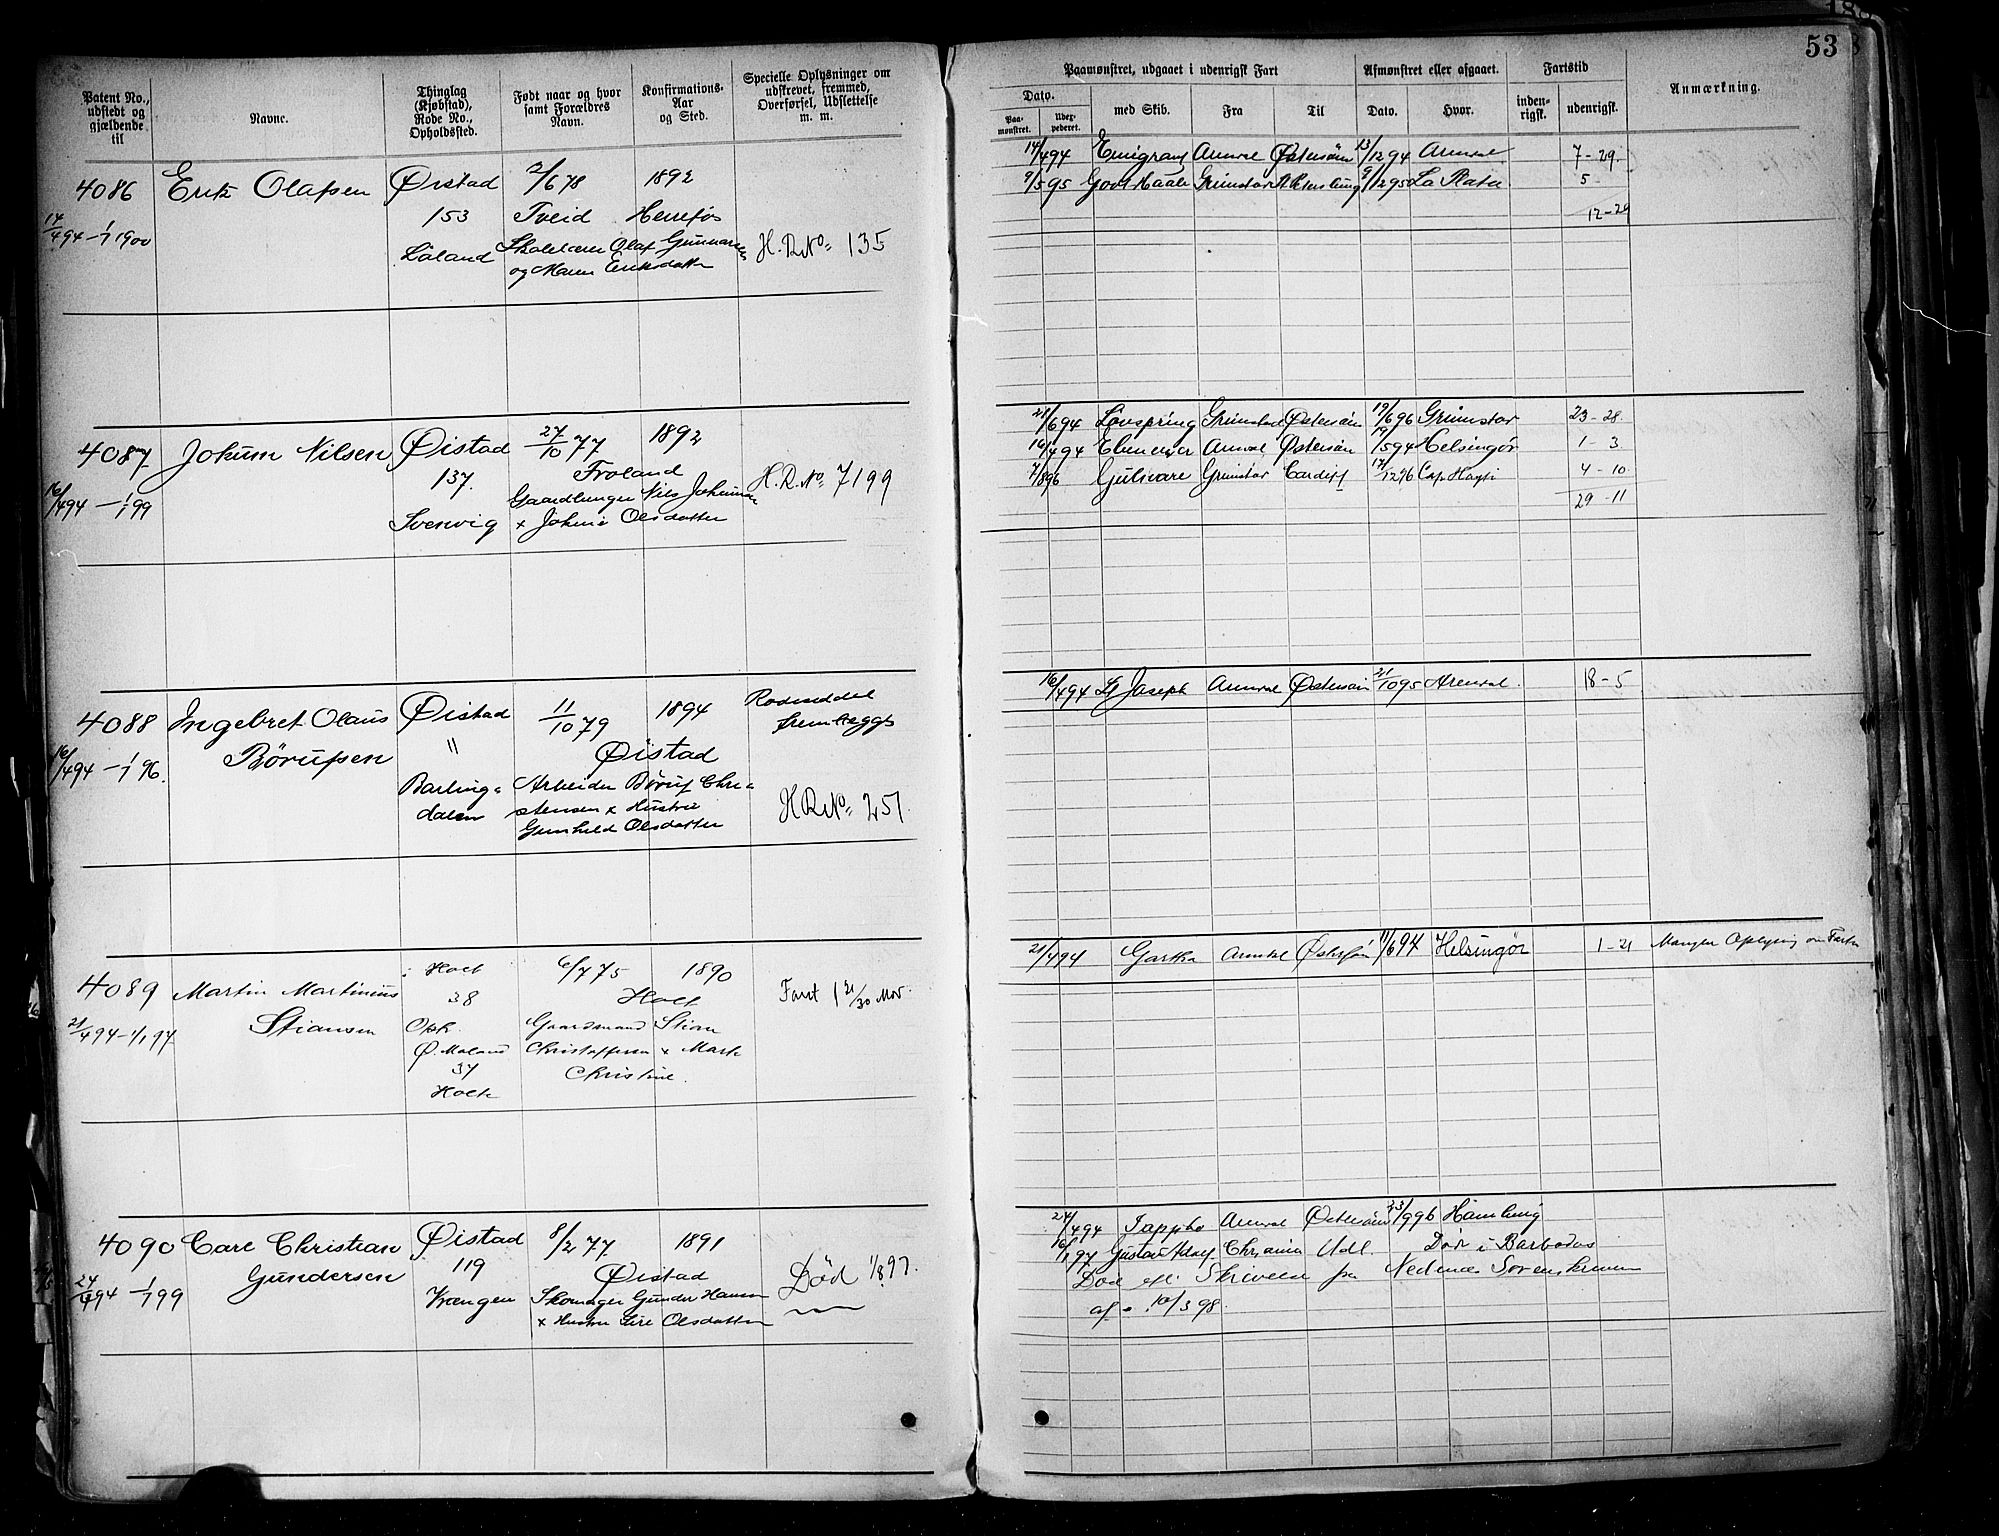 53
Patent No., udstedt og gjældende til
Navne.
Thinglag (Kjøbstad), Rode No., Opholdsted.
Født naar og hvor samt Forældres Navn.
Konfirmations-Aar og Sted.
Specielle Oplysninger om udskrevet, fremmed, Overførsel, Udslettelse m. m.
Paamønstret, udgaaet i udenrigsk Fart
Afmønstret eller afgaaet.
Fartstid
Anmærkning.
Dato.
Paa-mønstret.
Udex-pederet.
med Skib.
Fra
Til
Dato.
Hvor.
inden-rigsk.
udenrigsk.
4086 Erik Olafsen Øistad 2/6 78 1892
14/4 94 – 1/1 1900 153 Tveid Herefos
Løland Skolelærer Olaf Gunnarsen H.R.No. 135
og Maren Eriksdatter
14/4 94 Emigrant Arendal Østersøen 13/12 94 Arendal 7-29.
9/5 95 Grimstad 9/12 95 La Plata 5
12-29
4087 Jokum Nilsen Øistad 27/10 77 1892
16/4 94 – 1/1 99 137. Froland
Gaardbruger Nils Jokumsen H.R.No. 7199
Svenvig + Olsdatter
21/6 94 Lovspring Grimstad Østersøen 19/6 96 Grimstad 23-28
16/4 94 Ebeneser Arendal Østersøen 594 Helsingør 1-3
7/8 96 Gulivare Grimstad Cardiff 17/12 96 Cap Hayti 4-10
29-11
4088 Ingebret Olaus Øistad 11/10 79 1894 Rodeseddel fremlægges
16/4 94 – 1/1 96. Børufsen " Øistad
Barlingdalen Arbeider Børuf Christensen + Hustru H.R.No. 251.
Gunhild Olsdatter
16/4 94 St Joseph Arendal Østersøen 21/10 95 Arendal. 18-5
4089 Martin Martinius Holt 6/7 75 1890
21/4 94 – 1/1 97 Stiansen 38 Holt Fart 1 21/30 Mdr.
Oph. Gaardmand Stian
Ø. Moland Christoffersen +
37 Christine.
Holt
21/4 94 Garka Arendal Østersøn 11/6 94 Helsingør 1-21 Mangler Oplysning om Fartn
4090 Carl Christian Øistad 8/2 77 1891
24/4 94 – 1/1 99 Gundersen 119 Øistad Død 1/8 97.
Vrængen Skomager Gunder Hansen
+ Hustru Siri Olsdatter
24/4 94 Sappho Arendal Østersøen 23/9 96 Hamburg
16/1 97 Gustav Adolf Chr.ania Udl. Død i Barbados
Død efter Skrivelse fra Nedenæs Sorenskriver
af 10/3 98.